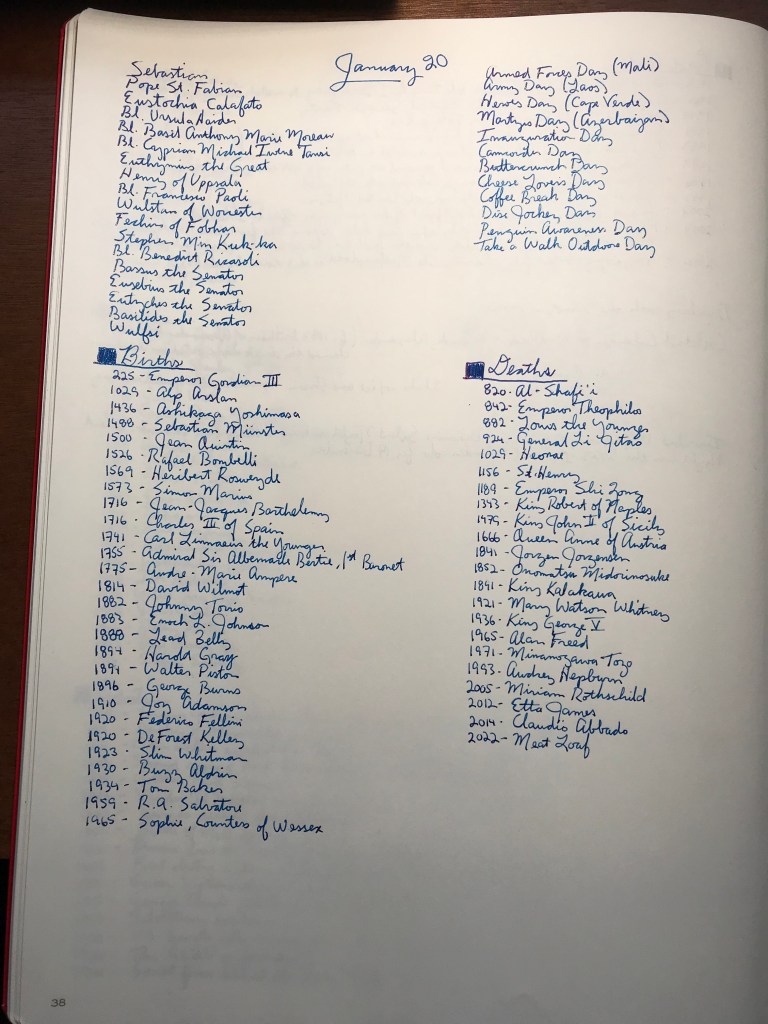 January 20
Sebastian
Pope St. Fabian
Eustochia Calafato
Bl. Ursula Haider
Bl. Basil Anthony Marie Moreau
Bl. Cyprian Michael Iwene Tansi
Euthymius the Great
Henry of Uppsala
Bl. Francesco Paoli
Wulstan of Worcester
Fechin of Fobhar
Stephen Min Kuk-ka
Bl. Benedict Ricasoli
Bassus the Senator
Eusebius the Senator
Eutyches the Senator
Basilides the Senator
Wulfsi
Armed Forces Day (Mali)
Army Day (Laos)
Heroes Day (Cape Verde)
Martyrs Day (Azerbaijan)
Inauguration Day
Camcorder Day
Buttercrunch Day
Cheese Lovers Day
Coffee Break Day
Disc Jockey Day
Penguin Awareness Day
Take a Walk Outdoors Day
Births
225 - Emperor Gordian III
1029 - Alp Arslan
1436 - Ashikaga Yoshimasa
1488 - Sebastian Münster
1500 - Jean Quintin
1526 - Rafael Bombelli
1569 - Heribert Rosweyde
1573 - Simon Marius
1716 - Jean-Jacques Barthelemy
1716 - Charles III of Spain
1741 - Carl Linnaeus the Younger
1755 - Admiral Sir Albemarle Bertie, 1st Baronet
1775 - Andre-Marie Ampere
1814 - David Wilmot
1882 - Johnny Torio
1883 - Enoch L. Johnson
1888 - Lead Belly
1894 - Harold Gray
1894 - Walter Piston
1896 - George Burns
1910 - Joy Adamson
1920 - Federico Fellini
1920 - DeForest Kelley
1923 - Slim Whitman
1930 - Buzz Aldrin
1934 - Tom Baker
1959 - R.A. Salvatore
1965 - Sophie, Countess of Wessex
Deaths
820 - Al-Shafi'i
842 - Emperor Theophilos
882 - Louis the Younger
924 - General Li Jitao
1029 - Heonae
1156 - St. Henry
1189 - Emperor Shi Zong
1343 - King Robert of Naples
1479 - King John II of Sicily
1666 - Queen Anne of Austria
1841 - Jorgen Jorgensen
1852 - Onomatsu Midorinosuke
1891 - King Kalakaua
1921 - Mary Watson Whitney
1936 - King George V
1965 - Alan Freed
1971 - Minanogawa Tozo
1993 - Audrey Hepburn
2005 - Miriam Rothschild
2012 - Etta James
2014 - Claudio Abbado
2022 - Meat Loaf
38